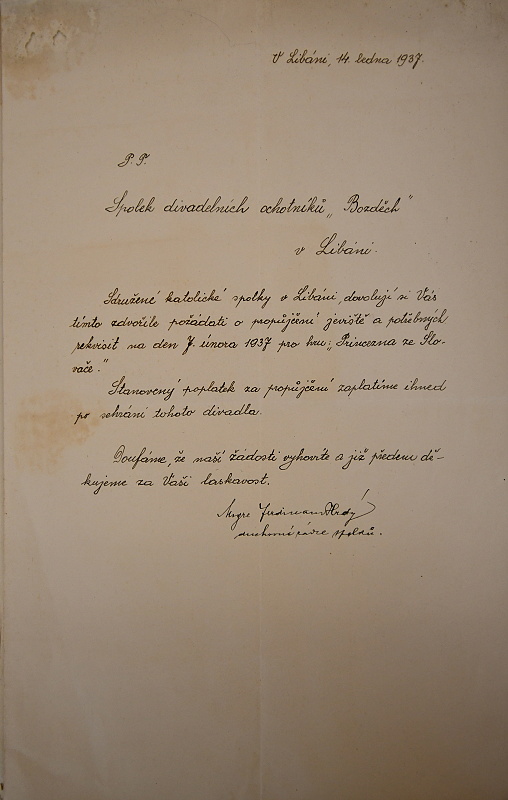 V Libáni, 14. ledna 1937.
P. T.
Spolek divadelních ochotníků „Bozděch"
v Libáni.
Sdružené katolické spolky v Libáni, dovolují si Vás
tímto zdvořile požádati o propůjčení jeviště a potřebných
rekvisit na den 7. února 1937 pro hru: „Princezna ze Slo-
vače."
Stanovený poplatek za propůjčení zaplatíme ihned
po sehrání tohoto divadla.
Doufáme, že naší žádosti vyhovíte a již předem dě-
kujeme za Vaši laskavost.
Hrdý
duchovní rádce spolků.